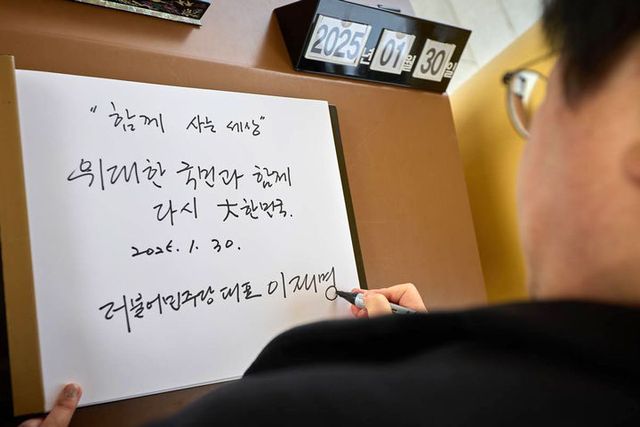 2025년 01월 30일
"함께 사는 세상"
위대한 국민과 함께
다시 大한민국.
2025. 1. 30.
더불어민주당 대표 이재명